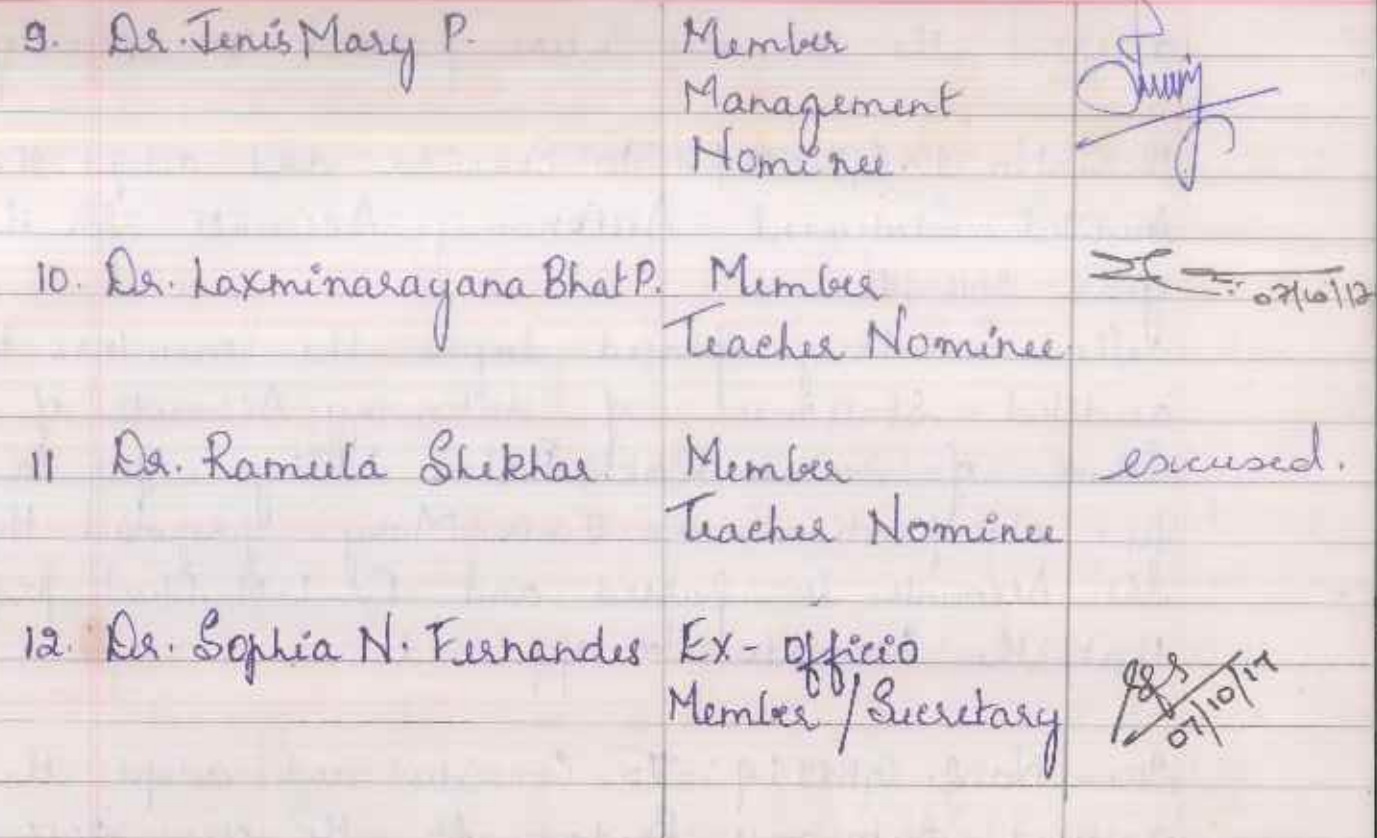 9. Dr. Jenis Mary P. Member
Management
Nominee
10. Dr. Laxminarayana Bhat P. Member 07/10/17
Teacher Nominee
11 Dr. Ramula Shekhar Member excused.
Teacher Nominee
12. Dr. Sophia N. Fernandes Ex-officio
Member / Secretary 07/10/17